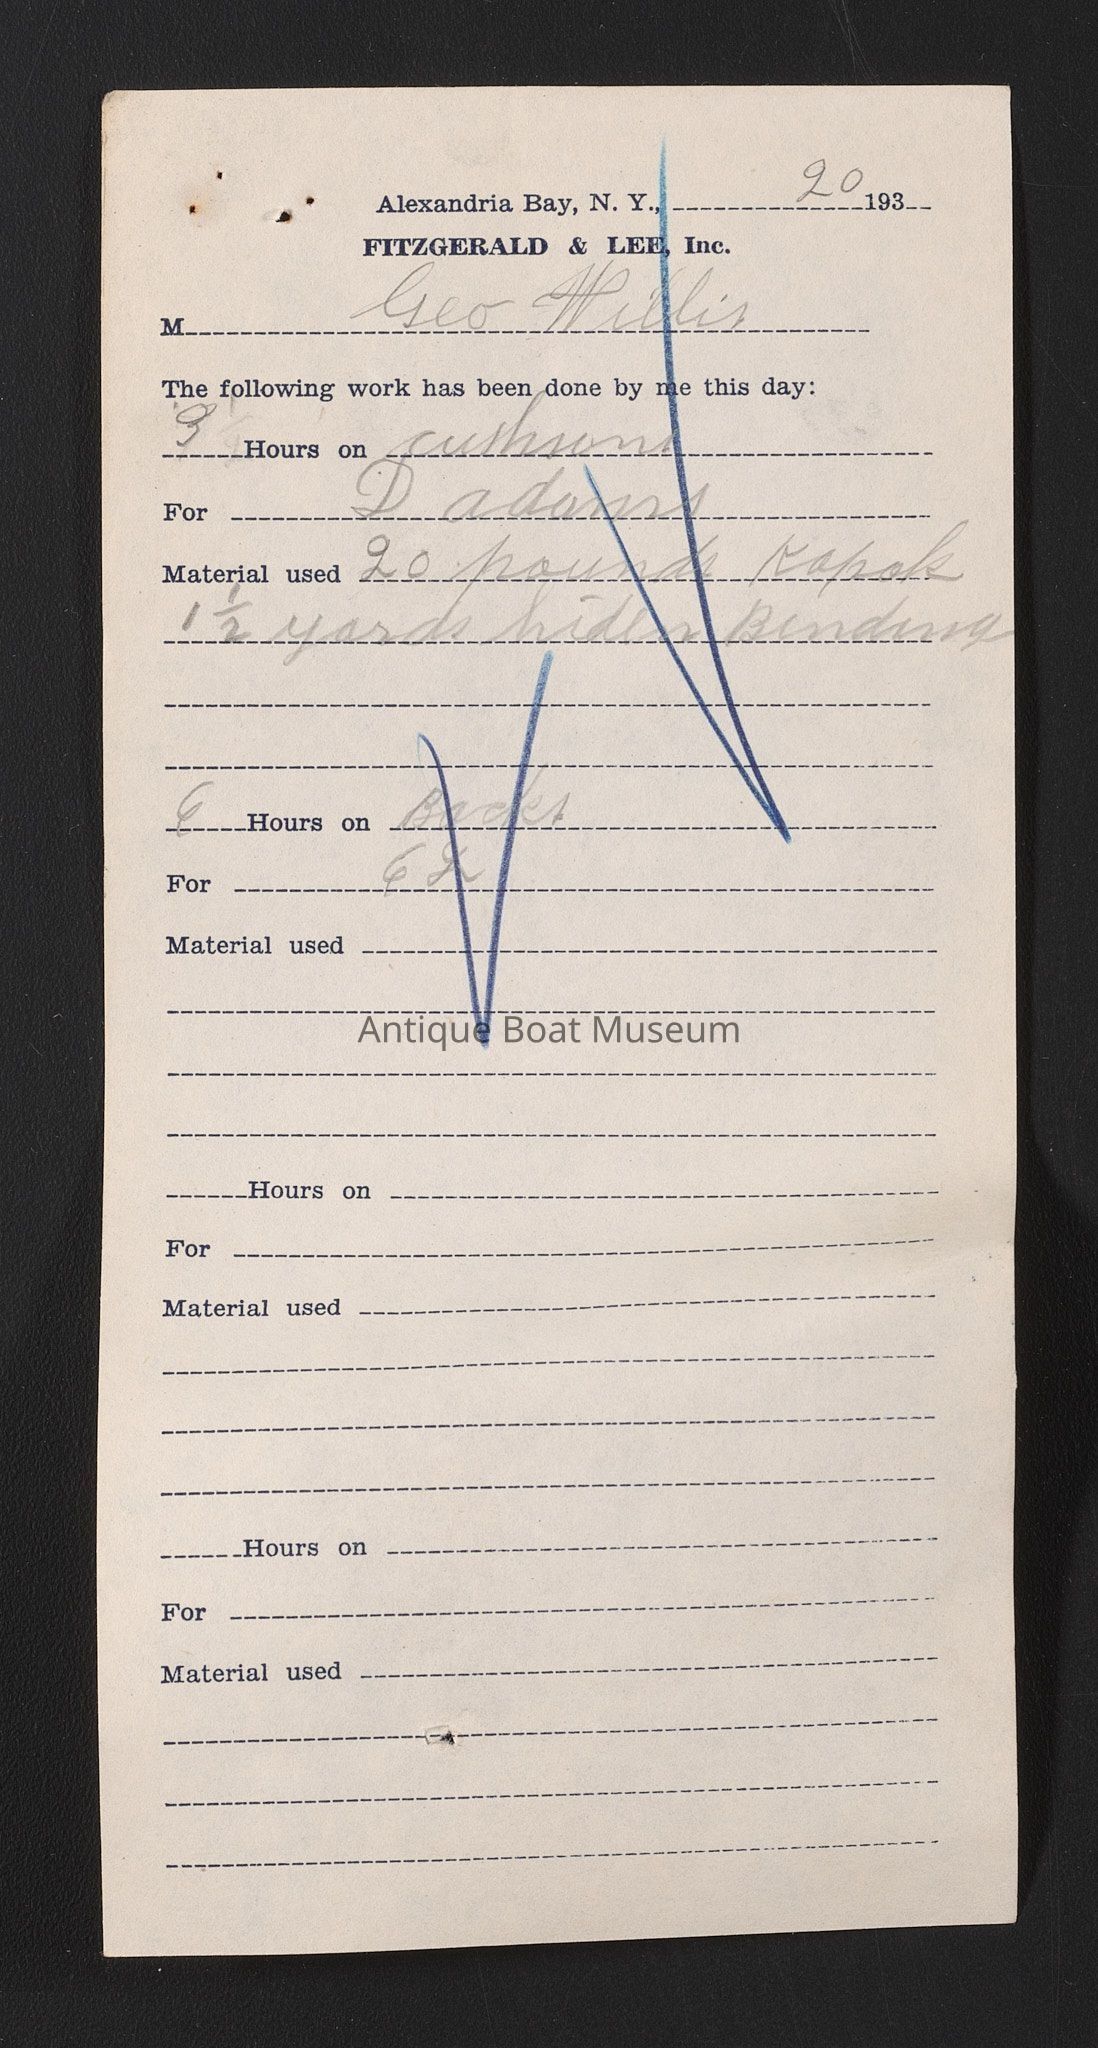 20
Alexandria Bay, N. Y., 193
FITZGERALD & LEE, Inc.
M Geo Willis
The following work has been done by me this day:
3 Hours on cushions
For D adams
Material used 20 pounds Kapok
1 1/2 yards hiden Binding
6 Hours on Backs
For
Material used
Antique Boat Museum
Hours on
For
Material used
Hours on
For
Material used